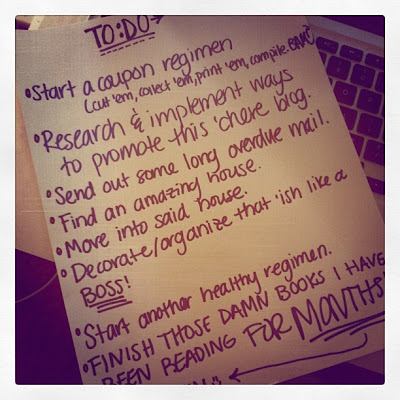 TO:DO→
• Start a coupon regimen
(cut 'em, collect 'em, print 'em, compile
• Research & implement ways
to promote this 'chere blog.
• Send out some long overdue mail.
• Find an amazing house.
• Move into said house.
• Decorate/organize that 'ish like a
BOSS!
• Start another healthy regimen.
• FINISH THOSE DAMN BOOKS I HAVE
BEEN READING FOR MONTHS!